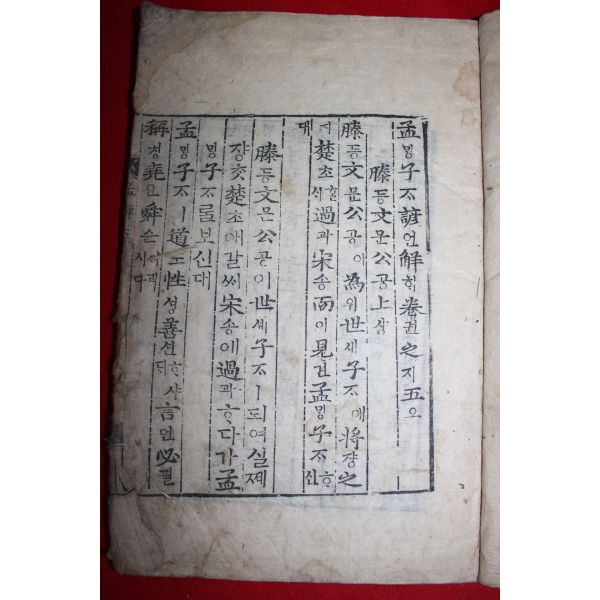 孟밍子ᄌᆞ諺언解ᄒᆡ卷권之지五오
滕등文문公공上샹
滕등文문公공이爲위世셰子ᄌᆞ애將쟝之
지楚초ᄒᆞᆯᄉᆡ過과宋송而이見견孟밍子ᄌᆞᄒᆞ신
대
滕등文문公공이世셰子ᄌᆞㅣ되여실제
쟝ᄎᆞᆺ楚초애갈ᄊᆡ宋송에過과ᄒᆞ다가孟
밍子ᄌᆞᄅᆞᆯ보신대
孟밍子ᄌᆞㅣ道도性셩善션ᄒᆞ샤ᄃᆡ言언必필
稱칭堯요舜슌이러시다